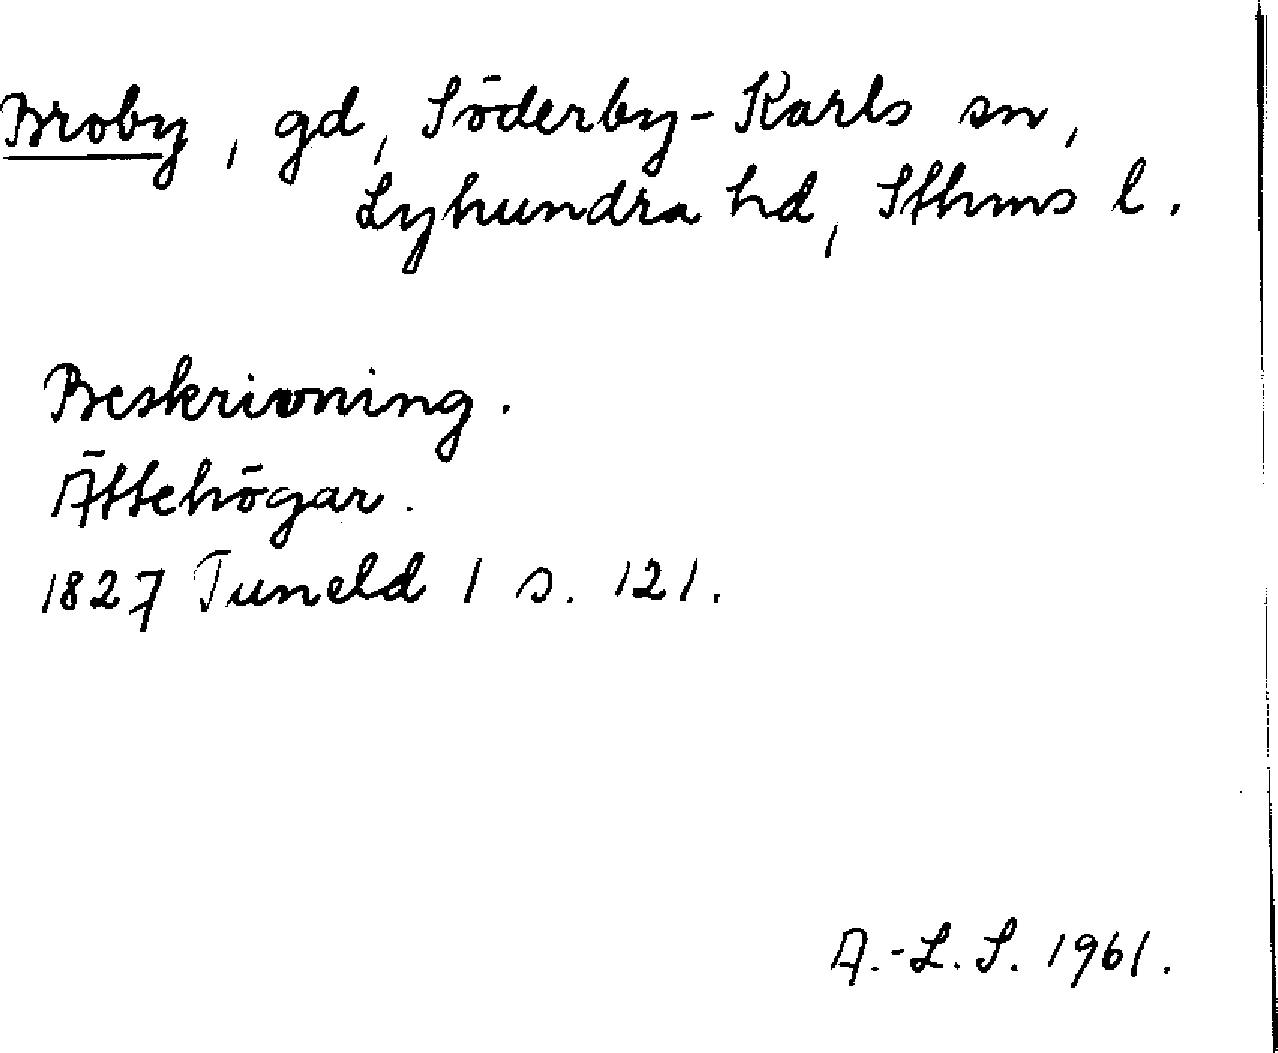 Broby, gd, Söderby-Karls sn,
Lyhundra hd, Sthms l.
Beskrivning.
Ättehögar.
1827 Tuneld 1 s. 121.
A.-L. S. 1961.